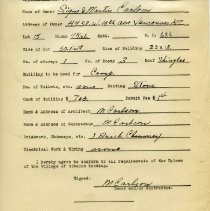 Name of Owner Signe & Martin Carlson
Address of Owner 4455 W 12th Ave Vancouver BC
Lot 15 Block D.L. 686
Size of Lot Size of Building 22x18
No. of storeys 1 No. of Rooms 3 Roof Shingles
Building to be used for Camp
No. of Toilets, etc. none Heating Stove
Cost of Building $ 700 Permit Fee $
Name & Address of Architect M Carlson
Name & Address of Contractor M Carlson
Brickwork, Chimneys, etc. 1 Brick Chimney
Electrical Work & Wiring none
I hereby agree to conform to all requirements of the Bylaws
of the Village of Gibsons Landing.
Signed:
M Carlson
Owner and/or Contractor.